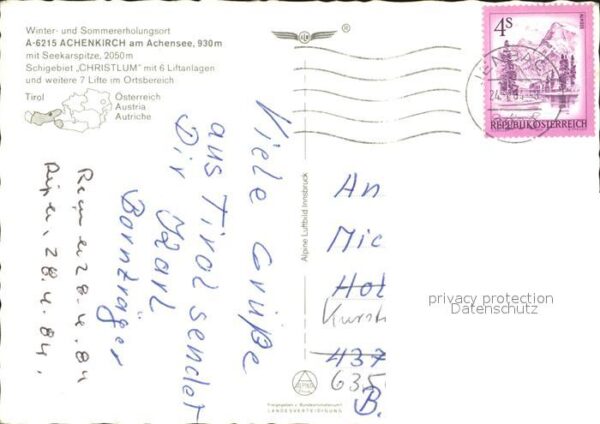 Winter- und Sommererholungsort
A-6215 ACHENKIRCH am Achensee, 930m
mit Seekarspitze, 2050m
Schigebiet „CHRISTLUM" mit 6 Liftanlagen
und weitere 7 Lifte im Ortsbereich
Tirol
Österreich
Austria
Autriche
®
4S
REPUBLIK ÖSTERREICH
JENBACH
Viele Grüße
aus Tirol sendet
Dir Karl
Bornträger
28.4.84
28.4.84.
Alpine Luftbild Innsbruck
An
Mic
Hol
Kurst
437
635
B.
privacy protection
Datenschutz
LANDESVERTEIDIGUNG